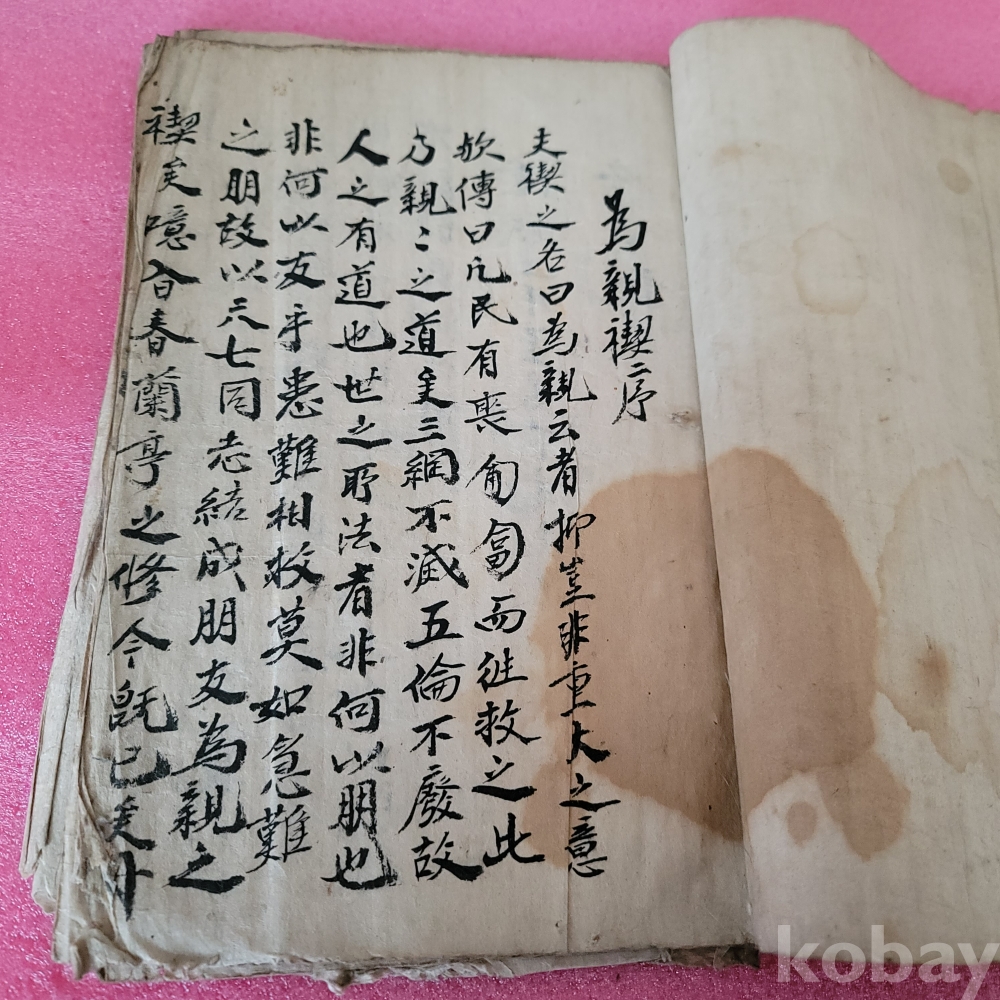 為親禊序
夫禊之名曰為親云者抑豈非重大之意
欤傳曰凡民有喪匍匐而徃救之此
乃親〻之道矣三綱不滅五倫不廢故
人之有道也世之所法者非何以朋也
非何以友乎患難相救莫如急難
之朋故以三七同志結成朋友為親之
禊矣噫昔春蘭亭之修今既已矣
kobay